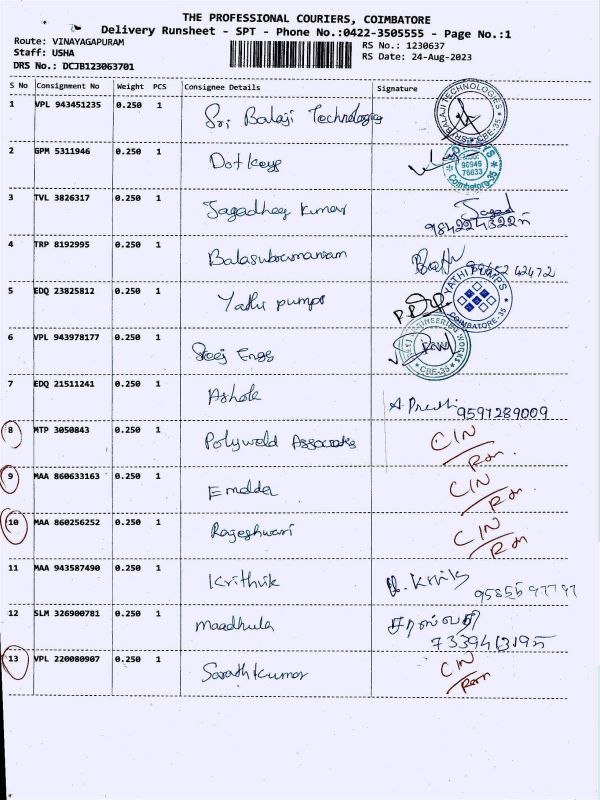 THE PROFESSIONAL COURIERS, COIMBATORE
Delivery Runsheet - SPT - Phone No.:0422-3505555 - Page No.:1
Route: VINAYAGAPURAM
Staff: USHA
DRS No.: DCJB123063701
RS No.: 1230637
RS Date: 24-Aug-2023
S No Consignment No Weight PCS Consignee Details Signature
1 VPL 943451235 0.250 1 Sri Balaji Technologies
BALAJI TECHNOLOGIES CBE-35
2 GPM 5311946 0.250 1 Dot keys
Coimbatore-35
3 TVL 3826317 0.250 1 Jagadheeg Kumar
4 TRP 8192995 0.250 1 Balasubramaniam
5 EDQ 23825812 0.250 1 Yathi pumps
YATHI PUMPS COIMBATORE-35
6 VPL 943978177 0.250 1 Engg
ENGINEERING WORKS CBE-35
7 EDQ 21511241 0.250 1 Ashok A. Preethi 9597289009
8 MTP 3050843 0.250 1 Polyweld Associates CIN
9 MAA 860633163 0.250 1 Emelda CIN
10 MAA 860256252 0.250 1 Rajeshwari CIN
11 MAA 943587490 0.250 1 Krithik
12 SLM 326900781 0.250 1 maadhula சரஸ்வதி
13 VPL 220080907 0.250 1 Sarath Kumar CIN